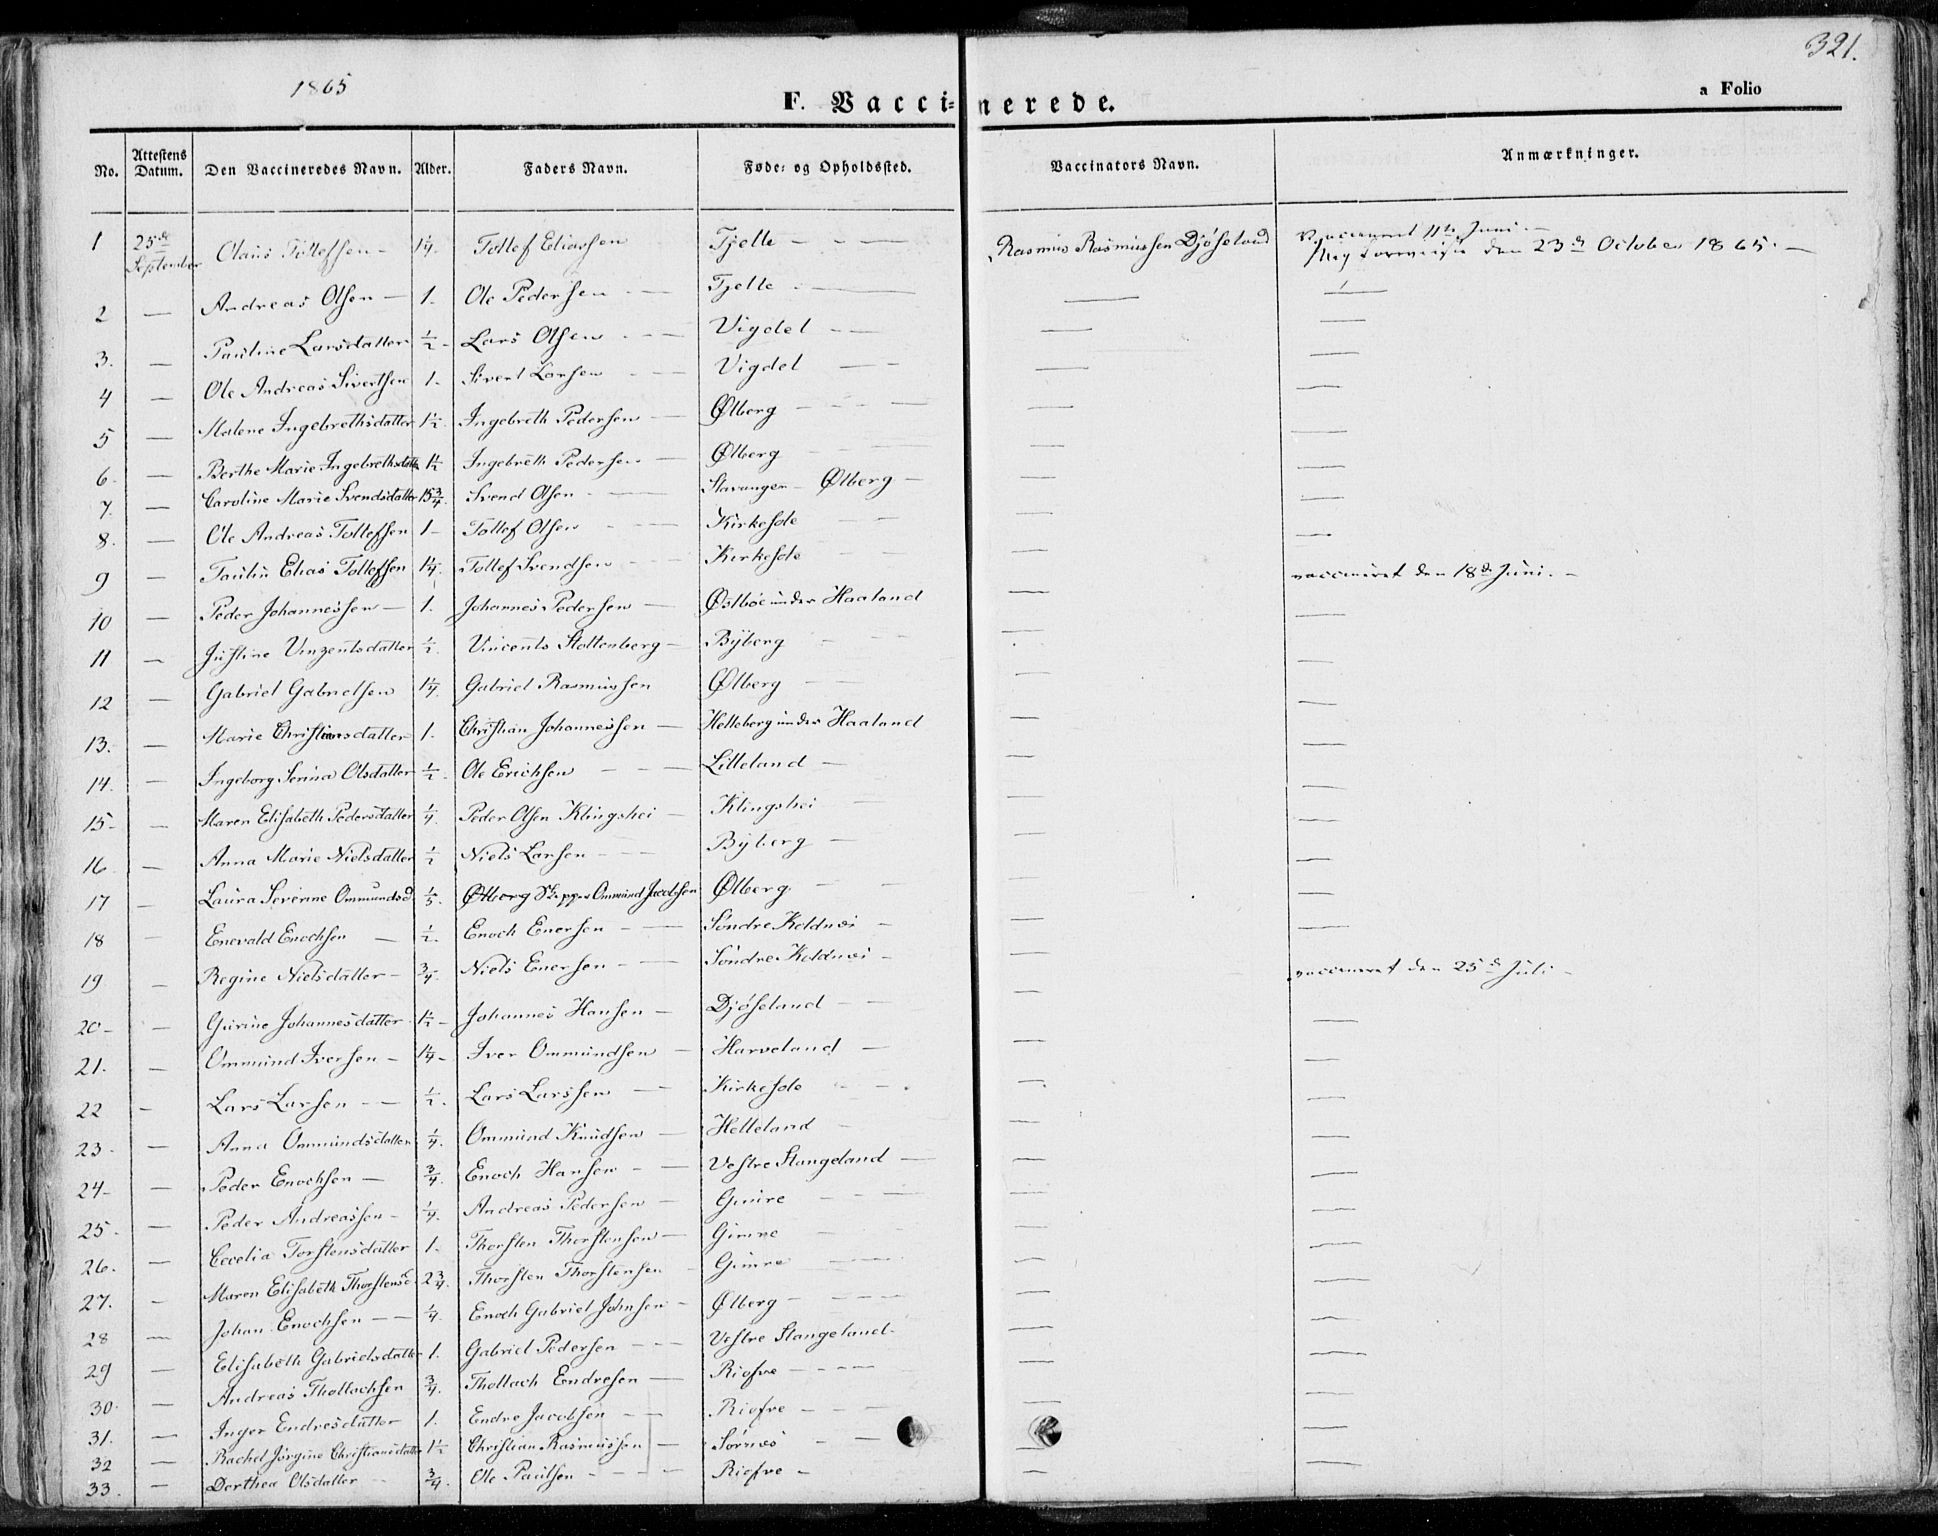 321.
1865
F. Vaccinerede.
a Folio
No. Attestens Datum. Den Vaccineredes Navn. Alder. Faders Navn. Føde- og Opholdssted. Vaccinators Navn. Anmærkninger.
1 25de September Olaus Tollefsen - 1¼. Tollef Eliassen Tjelte - - Rasmus Rasmussen Djøseland Vaccineret 11te Juni. -
den 23de October 1865. -
2 — Andreas Olsen — 1. Ole Pedersen — Tjelte — — —
3. — Pauline Larsdatter ½ - Lars Olsen - — Vigdel - — — —
4 — Ole Andreas Sivertsen 1. Sivert Larsen - — Vigdel — - — —
5 — Malene Ingebrethsdatter 1½. Ingebreth Pedersen — Ølberg - - — — —
6. — Berthe Marie Ingebrethsdatter 1½ Ingebreth Pedersen — Ølberg — — —
7. — Caroline Marie Svendsdatter 15¾. Svend Olsen - — Stavanger - Ølberg — — —
8. — Ole Andreas Tollefsen 1 - Tollef Olsen - — Kirkesole — — —
9 — Paulin Elias Tollefsen 1¼. Tollef Svendsen - — Kirkesole — — vaccineret den 18de Juni. -
10 — Peder Johannessen — 1. Johannes Pedersen — Østbøe under Haaland — —
11 — Justine Vinzentsdatter ½. Vincents Stoltenberg — Byberg — — —
12 — Gabriel Gabrielsen 1¼. Gabriel Rasmussen Ølberg — — —
13. — Marie Christiansdatter 1. Christian Johannessen — Helleberg under Haaland — —
14. — Ingeborg Serina Olsdatter ½. Ole Erichsen - — Litleland — — —
15 - — Maren Elisabeth Pedersdatter ¼. Peder Olsen Klingshei — Klingshei — — —
16. — Anna Marie Nielsdatter ½ Niels Larsen - - - Byberg — — —
17 — Laura Serine Ommundsd. ⅕. Ølberg Skipper Ommund Jacobsen Ølberg. — — —
18 — Enevald Enochsen — ½. Enoch Enersen - — Søndre Koldnæs — — —
19 — Regine Nielsdatter - ¾. Niels Enersen - — Søndre Koldnæs - — vaccineret den 25de Juli -
20 - — Gurine Johannesdatter 1½ - Johannes Hansen — Djøseland — — —
21. — Ommund Iversen - 1¼ - Iver Ommundsen — Harveland — — —
22 - Lars Larsen - — ½. Lars Larssen — Kirkesole - — — —
23 - — Anna Ommundsdatter ¼. Ommund Knudsen — Helleland — — —
24 - — Peder Enochsen — ¾. Enoch Hansen - — Vestre Stangeland — — —
25 - — Peder Andreassen - ¼. Andreas Pedersen — Gimre - - — — —
26. — Cecelia Torstensdatter 1. Thorsten Thorstensen — Gimre — — —
27. — Maren Elisabeth Thorstensd. 2¾. Thorsten Thorstensen Gimre — — —
28 — Johan Enochsen - — ¼. Enoch Gabriel Johnsen - Ølberg - - — — —
29 — Elisabeth Gabrielsdatter 1. Gabriel Pedersen - - - Vestre Stangeland. — —
30 - — Andreas Thollachsen ¾. Thollach Endresen — Riofre - - - — — —
31. — Inger Endresdatter 1. Endre Jacobsen - — Riofre - - — — —
32 — Rachel Jørgine Christiansdatter 1½ Christian Rasmussen — Sørnes - — — —
33. — Dorthea Olsdatter - - ¾. Ole Paulsen - - - - Riofre - — —